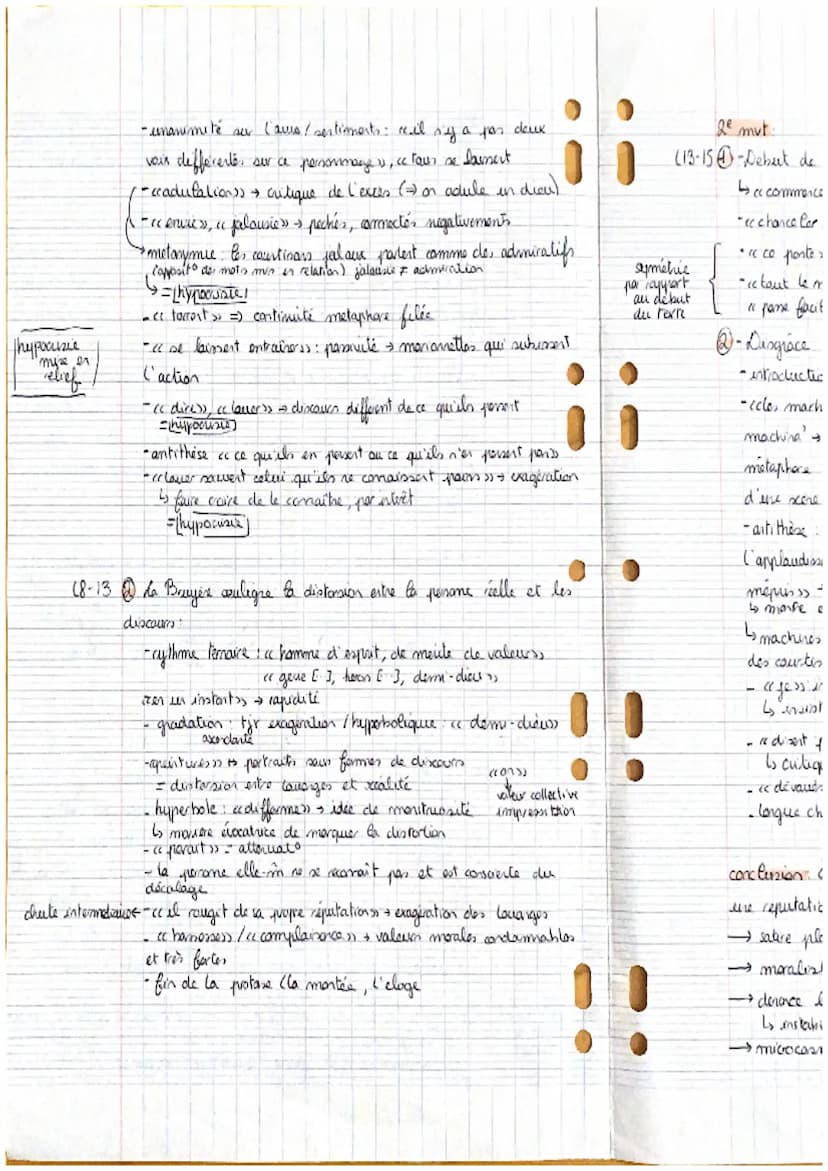 - unanimité sur l'avis / sentiments : « il n'y a pas deux
voix différentes sur ce personnage », « tous se laissent
- « adulation » → critique de l'excès (⇒ on adule un dieu)
- « envie », « jalousie » → péchés, connectés négativements
→ métonymie : les courtisans jaloux parlent comme des admiratifs
(apposit° des mots mis en relation) jalousie ≠ admiration
↳ = hypocrisie
- « torrent » ⇒ continuité métaphore filée
hypocrisie
mise en
relief
- « se laissent entraîner » : passivité → marionnettes qui subissent
l'action
- « dire », « louer » → discours différent de ce qu'ils pensent
= hypocrisie
- antithèse « ce qu'ils en pensent ou ce qu'ils n'en pensent pas »
- « louer souvent celui qu'ils ne connaissent point » → exagération
↳ faire croire de le connaître, par intérêt
= hypocrisie
L8-13 ② La Bruyère souligne la distorsion entre la personne réelle et les
discours :
- rythme ternaire : « homme d'esprit, de mérite de valeur »
« génie [..], héros [..], demi-dieu »
« en un instant » → rapidité
- gradation : tjr exagération / hyperbolique : « demi-dieu »
ascendante
- « peintures » ↔ portraits sous formes de discours
= distorsion entre louanges et réalité
« on »
↳ valeur collective
impression
- hyperbole : « difforme » → idée de monstruosité
↳ manière évocatrice de marquer la distortion
- « paraît » = atténuat°
- la personne elle-m̂ ne se reconnaît pas et est consciente du
décalage
chute intermédiaire ← - « il rougit de sa propre réputation » → exagération des louanges
- « bassesse » / « complaisance » → valeurs morales condamnables
et très fortes
- fin de la protase (la montée, l'éloge
2e mvt :
L13-15 ① - Début de
↳ « commence
- « chanceler
symétrie
par rapport
au début
du texte
- « ce poste »
- « tout le m
« passe facil
② - Disgrâce
- introductio
- « les mach
machina' →
métaphore
d'une scène
- antithèse :
l'applaudiss
mépris »
↳ montre
↳ machines
des courtis
↳ insist
- « disent
↳ critiq
- « dévoués
- longue ch
conclusion :
une réputatio
→ satire
→ moralist
→ dénonce
↳ instabi
→ microcosm